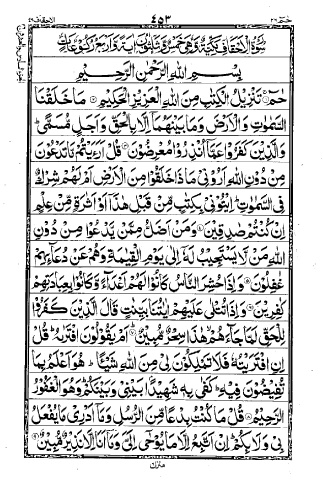 حٰمٓ ٢٦ ٤٥٣ الاحقاف ٤٦
سُوْرَةُ الْاَحْقَافِ مَكِّيَّةٌ وَّهِيَ خَمْسٌ وَّثَلٰثُوْنَ اٰيَةً وَّاَرْبَعُ رُكُوْعَاتٍ
بِسْمِ اللهِ الرَّحْمٰنِ الرَّحِيْمِ
حٰمٓ ۚ تَنْزِيْلُ الْكِتٰبِ مِنَ اللهِ الْعَزِيْزِ الْحَكِيْمِ ۝ مَا خَلَقْنَا
السَّمٰوٰتِ وَالْاَرْضَ وَمَا بَيْنَهُمَاۤ اِلَّا بِالْحَقِّ وَاَجَلٍ مُّسَمًّى ؕ
وَالَّذِيْنَ كَفَرُوْا عَمَّاۤ اُنْذِرُوْا مُعْرِضُوْنَ ۝ قُلْ اَرَءَيْتُمْ مَّا تَدْعُوْنَ
مِنْ دُوْنِ اللهِ اَرُوْنِيْ مَاذَا خَلَقُوْا مِنَ الْاَرْضِ اَمْ لَهُمْ شِرْكٌ
فِي السَّمٰوٰتِ ؕ اِيْتُوْنِيْ بِكِتٰبٍ مِّنْ قَبْلِ هٰذَاۤ اَوْ اَثٰرَةٍ مِّنْ عِلْمٍ
اِنْ كُنْتُمْ صٰدِقِيْنَ ۝ وَمَنْ اَضَلُّ مِمَّنْ يَّدْعُوْا مِنْ دُوْنِ
اللهِ مَنْ لَّا يَسْتَجِيْبُ لَهٗۤ اِلٰى يَوْمِ الْقِيٰمَةِ وَهُمْ عَنْ دُعَآئِهِمْ
غٰفِلُوْنَ ۝ وَاِذَا حُشِرَ النَّاسُ كَانُوْا لَهُمْ اَعْدَآءً وَّكَانُوْا بِعِبَادَتِهِمْ
كٰفِرِيْنَ ۝ وَاِذَا تُتْلٰى عَلَيْهِمْ اٰيٰتُنَا بَيِّنٰتٍ قَالَ الَّذِيْنَ كَفَرُوْا
لِلْحَقِّ لَمَّا جَآءَهُمْ ۙ هٰذَا سِحْرٌ مُّبِيْنٌ ۝ اَمْ يَقُوْلُوْنَ افْتَرٰىهُ ؕ قُلْ
اِنِ افْتَرَيْتُهٗ فَلَا تَمْلِكُوْنَ لِيْ مِنَ اللهِ شَيْئًا ؕ هُوَ اَعْلَمُ بِمَا
تُفِيْضُوْنَ فِيْهِ ؕ كَفٰى بِهٖ شَهِيْدًۢا بَيْنِيْ وَبَيْنَكُمْ ؕ وَهُوَ الْغَفُوْرُ
الرَّحِيْمُ ۝ قُلْ مَا كُنْتُ بِدْعًا مِّنَ الرُّسُلِ وَمَاۤ اَدْرِيْ مَا يُفْعَلُ
بِيْ وَلَا بِكُمْ ؕ اِنْ اَتَّبِعُ اِلَّا مَا يُوْحٰۤى اِلَيَّ وَمَاۤ اَنَا اِلَّا نَذِيْرٌ مُّبِيْنٌ ۝
منزل